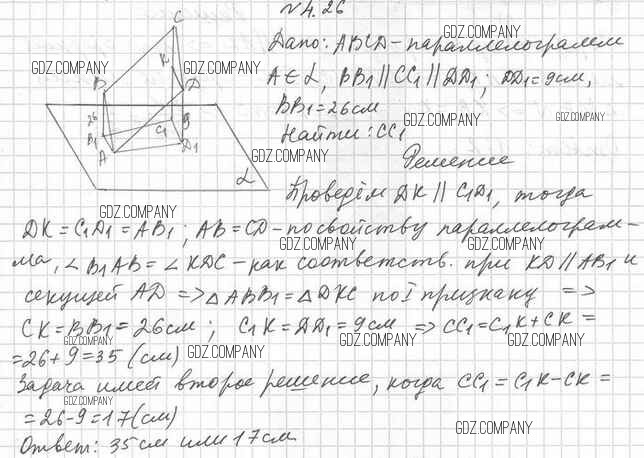 №4.26
Дано: ABCD - параллелограмм
A ∈ α, BB₁ || CC₁ || DD₁; DD₁ = 9см,
BB₁ = 26см
Найти: CC₁
Решение
Проведём DK || C₁D₁, тогда
DK = C₁D₁ = AB₁; AB = CD - по свойству параллелограм-
ма, ∠B₁AB = ∠KDC - как соответств. при KD || AB₁ и
секущей AD => △ABB₁ = △DKC по I признаку =>
CK = BB₁ = 26см; C₁K = DD₁ = 9см => CC₁ = C₁K + CK =
= 26 + 9 = 35 (см)
Задача имеет второе решение, когда CC₁ = C₁K - CK =
= 26 - 9 = 17 (см)
Ответ: 35см или 17см.
C
K
B
D
26
B₁
A
C₁
8
D₁
α
GDZ.COMPANY
GDZ.COMPANY
GDZ.COMPANY
GDZ.COMPANY
GDZ.COMPANY
GDZ.COMPANY
GDZ.COMPANY
GDZ.COMPANY
GDZ.COMPANY
GDZ.COMPANY
GDZ.COMPANY
GDZ.COMPANY
GDZ.COMPANY
GDZ.COMPANY
GDZ.COMPANY
GDZ.COMPANY